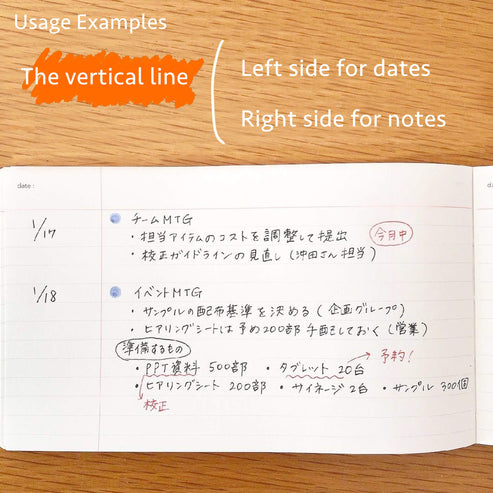 Usage Examples
The vertical line
Left side for dates
Right side for notes
date :
1/17
チームMTG
・担当アイテムのコストを調整して提出 今月中
・校正ガイドラインの見直し(沖田さん担当)
1/18
イベントMTG
・サンプルの配布基準を決める(企画グループ)
・ヒアリングシートは予め200部手配しておく(営業)
準備するもの
予約!
・PPT資料 500部 ・タブレット 20台
・ヒアリングシート 200部 ・サイネージ2台 ・サンプル 300個
校正